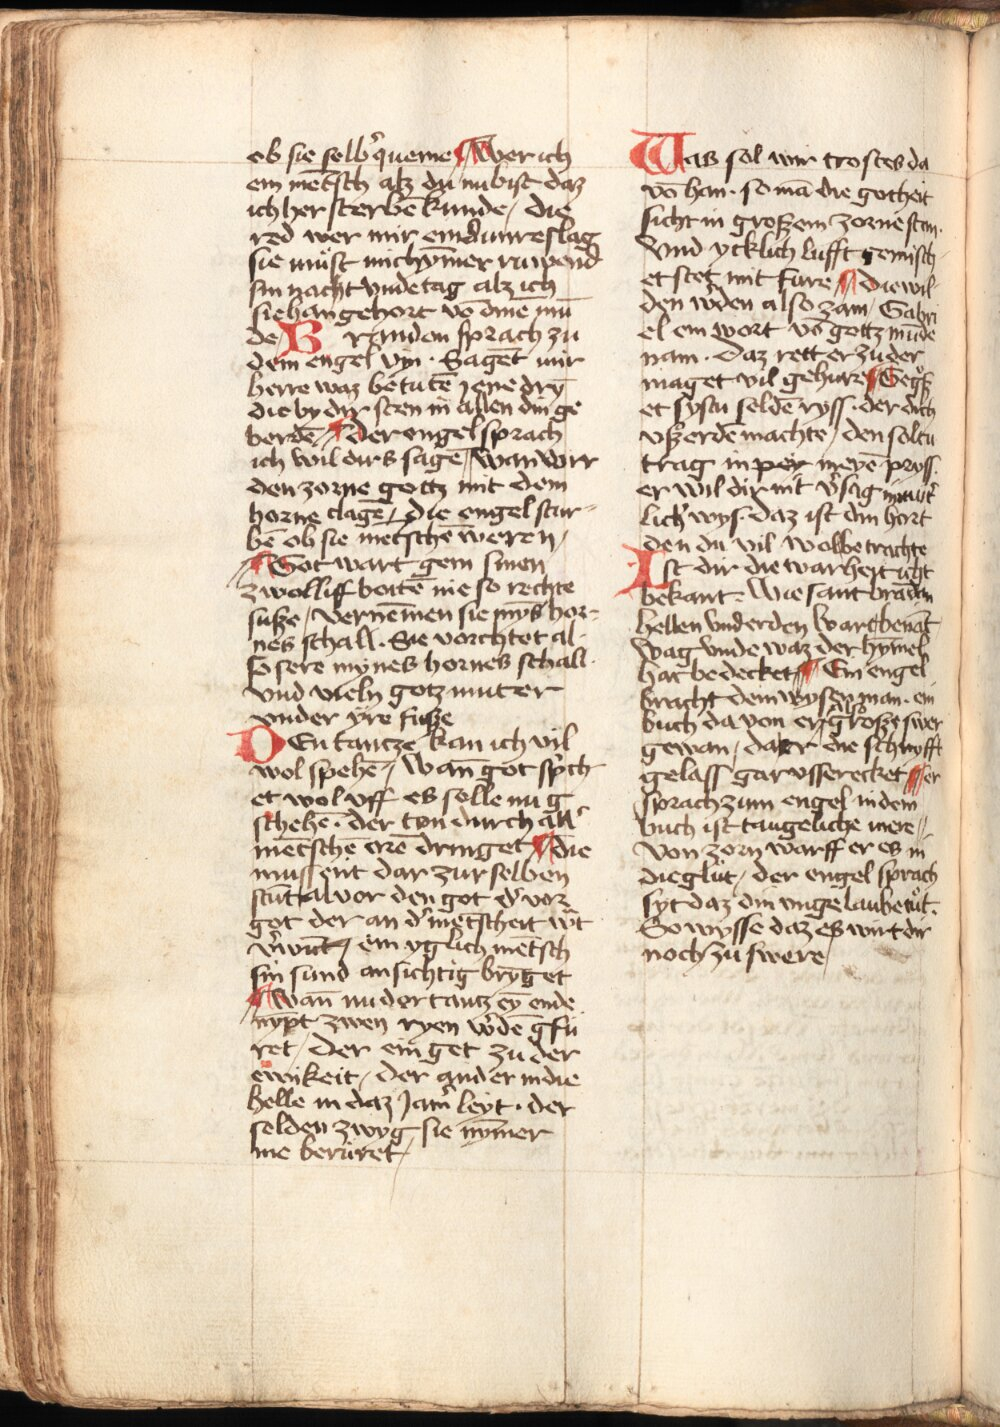 ob sie selb᷒ queme ¶ Wer ich
ein mētsch alz du nu bist daz
ich her sterbē kunde / die
red wer mir ein dunreslag
sie müst mich ym̄er ruwend
sin nacht vnde tag alz ich
sie han gehort vō dine mū
de B randon sprach zu
dem engel vyn · Sagēt mir
herre waz betutē yene dry
die by dir sten in allen din ge
berdē / ¶ der engel sprach
ich wil dirs sagē / Wan wir
den zorne gottz mit dem
horne clagē / die engel stur-
bē ob sie metschē weren /
¶ Got wart gem sinen
zwolliff bottē nie so rechte
susze / vernēmen sie myns hor-
nes schall · Sie vorchtot al-
so sere mynes hornes schall ·
vnd vieln gotz muter
vnder yre fusze
DEn tantze kan ich vil
wol spehē / Wan̄ got sp̄ch
et wol vff es solle nu g
schehē · der ton durch all᷒
metschē orē dringet ¶ die
mussent dar zur selben
stūt al vor den got d᷒ vor
got der an d᷒ metscheit w᷒t
v᷒wūt / ein yglich metsch
sin sund ansichtig bryget
¶ Wan̄ nu der tantz ey ende
nypt zwen ryen w᷒dē gfu
ret / Der ein get zu der
ewikeit / der ander in die
helle in daz Jam᷒ leyt · der
selden zwyg sie nym̄er
me berüret /
Was sol mir trostes da
vō han · so mā die gotheit
sicht in groszem zorne stan ·
Vnd ycklich lufft gemisch
et stet mit fure ¶ die wil-
den w᷒den also zam / Gabri
el ein wort vō gottz mūde
nam · Daz rett er zu der
maget vil gehure ¶ Gegrüsz
et systu seldē ryss · der dich
vsz erdē machte / den soltu
trag in meyē pryss ·
er wil dir nit v᷒sag
lich᷒ wys · daz ist din hort
den du vil wol betrachte
Ist dir die warheit icht
bekant · Wie sant brādan
hellen vnd erden wart benāt
wag vnde waz der hym̄el
hat bedecket ¶ Ein engel
bracht dem wysen man · ein
buch da von er grosze swer
gewan / da er die schryfft
gelass gar vsserecket ¶ er
sprach zum engel in dem
buch ist taugeliche mere //
Von zorn warff er es in
die glüt / der engel sprach
syt daz din vngelaube tüt ·
So wysse daz es wirt dir
noch zu swere /